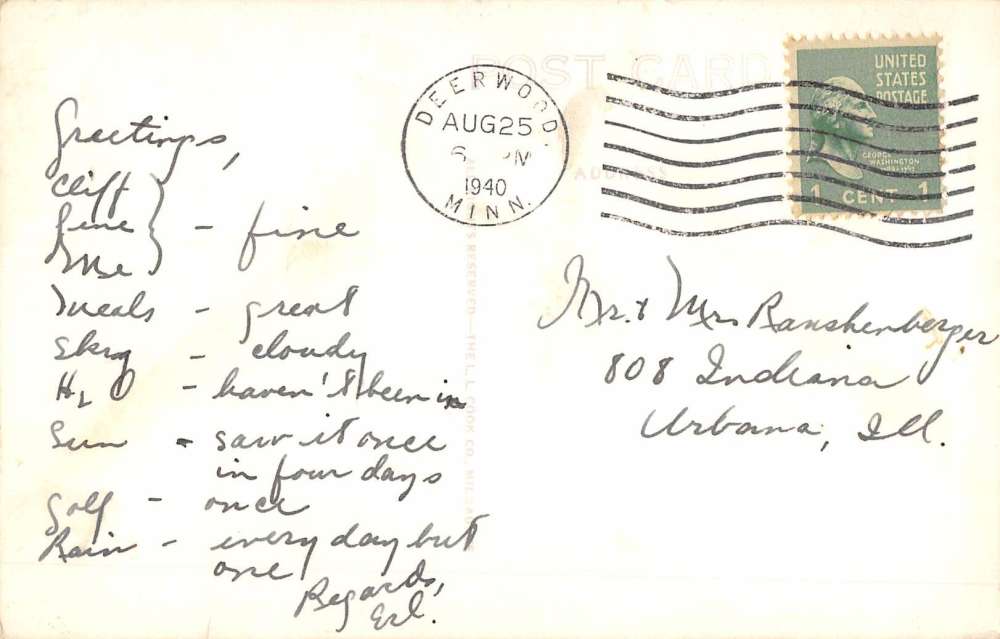 POST CARD
DEERWOOD,
AUG 25
6 PM
1940
MINN.
UNITED
STATES
POSTAGE
GEORGE
WASHINGTON
1 CENT 1
ADDRESS
Greetings,
Cliff
Me
} - fine
Meals - great
Sky - cloudy
H2O - haven't been in
Sun - saw it once
in four days
Golf - once
Rain - every day but
one
Regards,
Mr. & Mrs Ranshenberger
808 Indiana
Urbana, Ill.
S RESERVED—THE L.L. COOK CO.